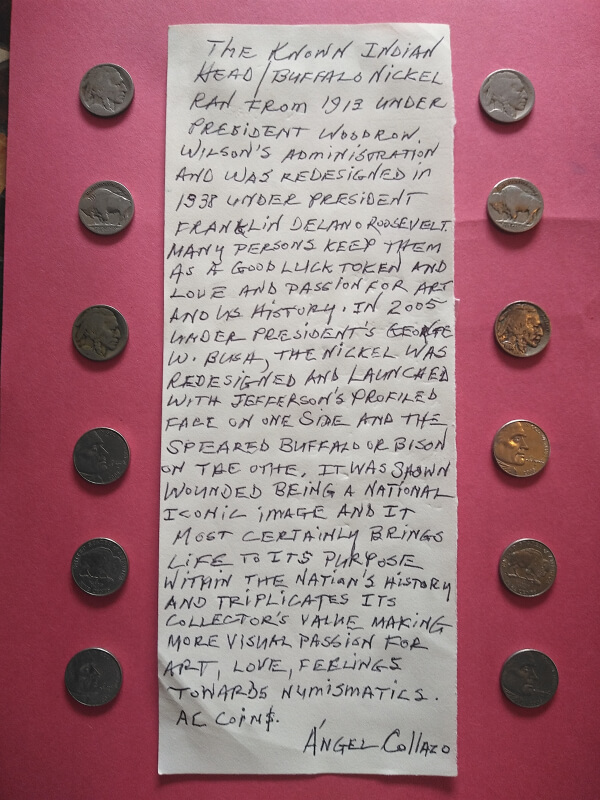 THE KNOWN INDIAN
HEAD/BUFFALO NICKEL
RAN FROM 1913 UNDER
PRESIDENT WOODROW
WILSON'S ADMINISTRATION
AND WAS REDESIGNED IN
1938 UNDER PRESIDENT
FRANKLIN DELANO ROOSEVELT.
MANY PERSONS KEEP THEM
AS A GOOD LUCK TOKEN AND
LOVE AND PASSION FOR ART
AND US HISTORY. IN 2005
UNDER PRESIDENT'S GEORGE
W. BUSH, THE NICKEL WAS
REDESIGNED AND LAUNCHED
WITH JEFFERSON'S PROFILED
FACE ON ONE SIDE AND THE
SPEARED BUFFALO OR BISON
ON THE OTHE. IT WAS SHOWN
WOUNDED BEING A NATIONAL
ICONIC IMAGE AND IT
MOST CERTAINLY BRINGS
LIFE TO ITS PURPOSE
WITHIN THE NATION'S HISTORY
AND TRIPLICATES ITS
COLLECTOR'S VALUE MAKING
MORE VISUAL PASSION FOR
ART, LOVE, FEELINGS
TOWARDS NUMISMATICS.
AC COIN$.
ÁNGEL COLLAZO